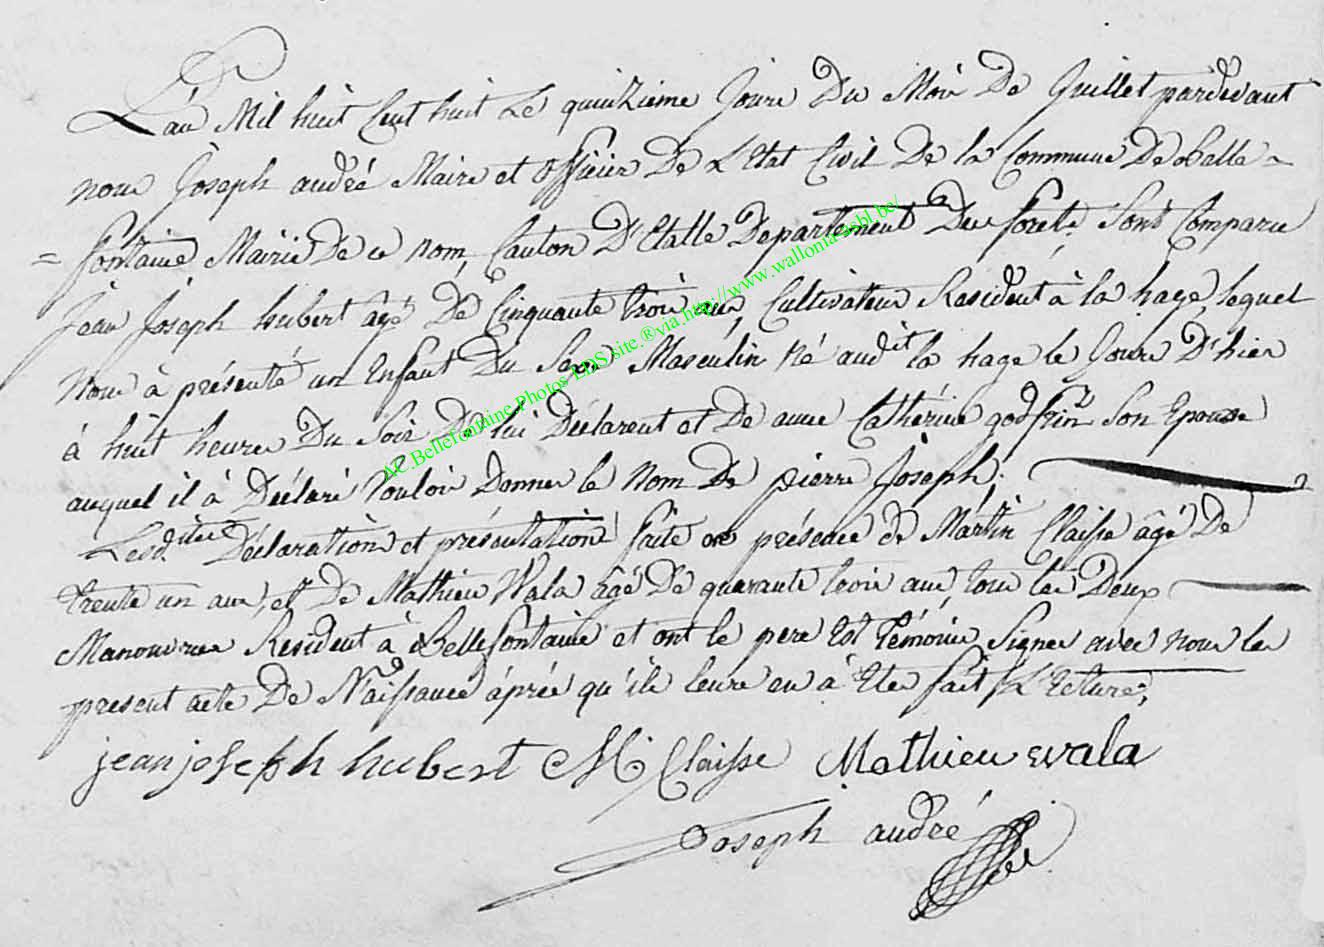 L'an Mil huit Cent huit Le quinzieme Jour Du Mois De Juillet pardevant
nous Joseph andré Maire et officier De L'Etat Civil De la Commune De Belle
= fontaine Mairie De ce nom, Canton D'Etalle Departement Des forets Sont Comparu
Jean Joseph hubert âgé De Cinquante trois ans, Cultivateur Resident à la hage, lequel
Nous à présenté un Enfant Du Sexe Masculin Né audit la hage le Jour D'hier
à huit heures Du Soir De lui Déclarent et De anne Cathérine godfrin Son Epouse
auquel il à Déclaré Vouloir Donner le Nom De pierre Joseph,
Lesdites Déclaration et présentation faite en présence de Martin Claisse âgé De
trente un ans, et De Mathieu Wala âgé De quarante trois ans tous les Deux
Manouvrier Resident à Bellefontaine et ont le pere Et Témoins Signer avec nous le
present acte De Naissance après qu'ils leurs en à Eter fait L'Ecture,
jean joseph hubert M Claisse Mathieu wala
Joseph andré
AC.Bellefontaine.Photos LDS site.®via http://www.wallonia-asbl.be/